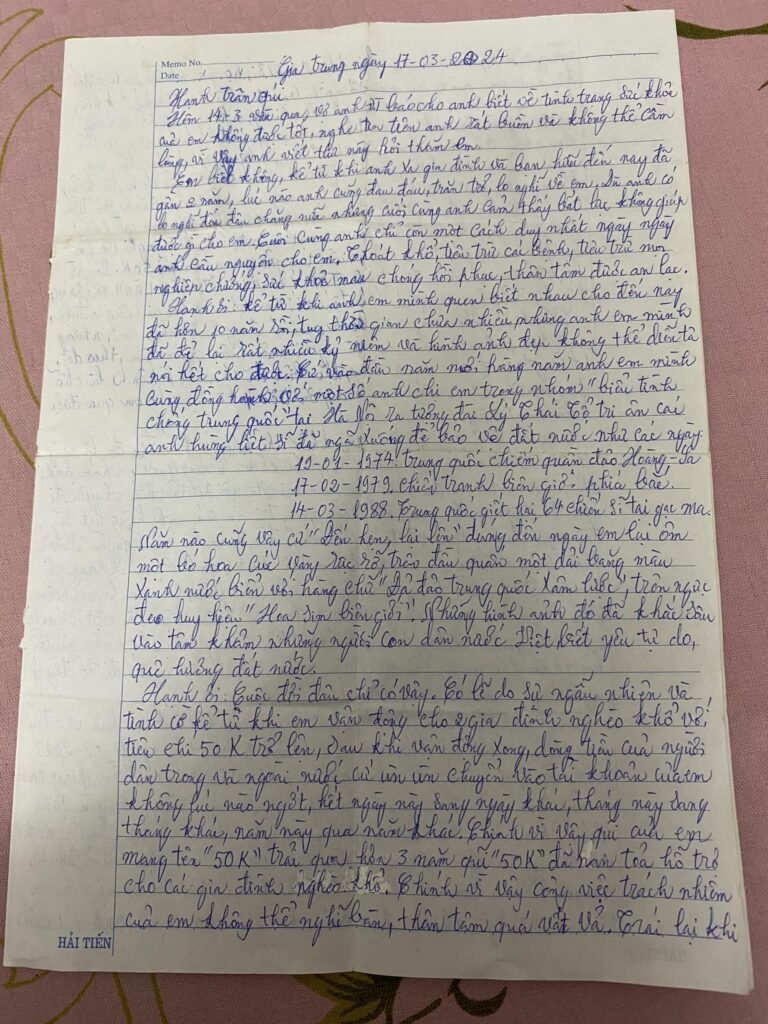 Memo No.
Date
Gia trung ngày 17-03-2024
Hạnh trân quí.
Hôm 14-3 vừa qua, vợ anh báo cho anh biết về tình trạng sức khỏe
của em không được tốt, nghe tin trên anh rất buồn và không thể cầm
lòng, vì vậy anh viết thư này hỏi thăm em.
Em biết không, kể từ khi anh xa gia đình và bạn hữu đến nay đã
gần 2 năm, lúc nào anh cũng đau đáu, trăn trở, lo nghĩ về em. Dù anh có
lo nghĩ đến đâu chăng nữa nhưng cuối cùng anh cảm thấy bất lực không giúp
được gì cho em. Cuối cùng anh chỉ còn một cách duy nhất ngày ngày
anh cầu nguyện cho em. Thoát khổ, tiêu trừ các bệnh, tiêu trừ mọi
nghiệp chướng, sức khỏe mau chóng hồi phục, thân tâm được an lạc.
Hạnh ơi: kể từ khi anh, em mình quen biết nhau cho đến nay
đã hơn 10 năm rồi, tuy thời gian chưa nhiều, nhưng anh em mình
đã để lại rất nhiều kỷ niệm và hình ảnh đẹp không thể diễn tả
nói hết cho được. Cứ vào đầu năm mới hàng năm anh em mình
cùng đồng hành với một số anh chị em trong nhóm "biểu tình
chống trung quốc" tại Hà Nội ra tượng đài Lý Thái Tổ tri ân các
anh hùng liệt sĩ đã ngã xuống để bảo vệ đất nước như các ngày.
19-01-1974. trung quốc chiếm quần đảo Hoàng-Sa
17-02-1979. chiến tranh biên giới phía bắc.
14-03-1988. Trung quốc giết hại 64 chiến sĩ tại gạc ma.
Năm nào cũng vậy cứ "Đến hẹn, lại lên" đúng đến ngày em lại ôm
một bó hoa cúc vàng rực rỡ, trên đầu quấn một dải băng màu
xanh nước biển với hàng chữ "Đả đảo trung quốc xâm lược", trên ngực
đeo huy hiệu "Hoa sim biên giới". Những hình ảnh đó đã khắc sâu
vào tâm khảm những người con dân nước Việt biết yêu tự do,
quê hương đất nước.
Hạnh ơi: Cuộc đời đâu chỉ có vậy. Có lẽ do sự ngẫu nhiên và
tình cờ kể từ khi em vận động cho 2 gia đình nghèo khổ với
tiêu chí 50 K trở lên, sau khi vận động xong, dòng tiền của người
dân trong và ngoài nước cứ ùn ùn chuyển vào tài khoản của em
không lúc nào ngớt, hết ngày này sang ngày khác, tháng này sang
tháng khác, năm này qua năm khác. Chính vì vậy quĩ của em
mang tên "50 K" trải qua hơn 3 năm quĩ "50K" đã lan toả hỗ trợ
cho các gia đình nghèo khổ. Chính vì vậy công việc trách nhiệm
của em không thể nghĩ bàn, thân tâm quá vất vả. Trái lại khi
HẢI TIẾN